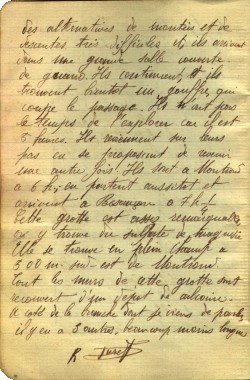 des alternatives de montées et de
descentes très difficiles et ils arrivent
dans une grande salle couverte
de guano. Ils continuent et ils
trouvent bientôt un gouffre qui
coupe le passage. Ils n'ont pas
le temps de l'explorer car il est
5 heures. Ils reviennent sur leurs
pas en se proposant de revenir
une autre fois. Ils sont à Montrond
à 6 h ½ en partent aussitôt et
arrivent à Besançon à 7 h ½
Cette grotte est assez remarquable
on y trouve du sulfate de magnésie
Elle se trouve en plein champ à
300 m. sud-est de Montrond
Tout les murs de cette grotte sont
recouvert d'un dépôt de
A côté de la branche dont je viens de parler
il y en a 3 autres, beaucoup moins longues